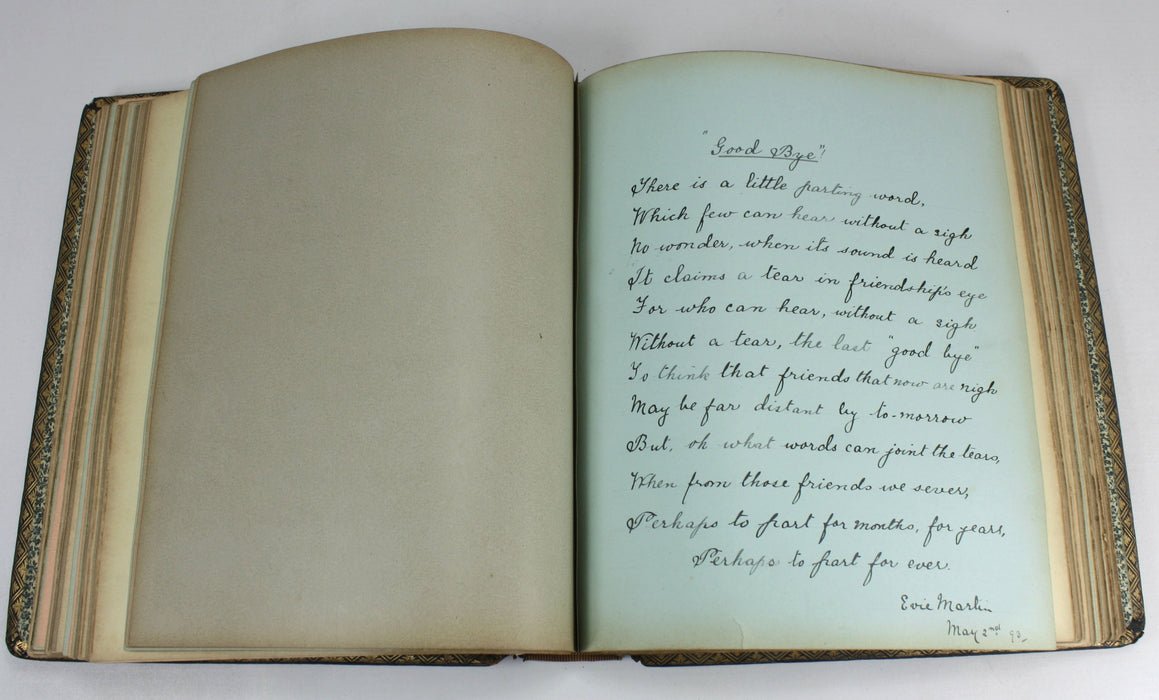 "Good Bye"!
There is a little parting word,
Which few can hear without a sigh
No wonder, when its sound is heard
It claims a tear in friendship's eye
For who can hear, without a sigh
Without a tear, the last "good bye"
To think that friends that now are nigh
May be far distant by to-morrow
But, oh what words can joint the tears,
When from those friends we sever,
Perhaps to part for months, for years,
Perhaps to part for ever.
Evie Martin
May 2nd 93